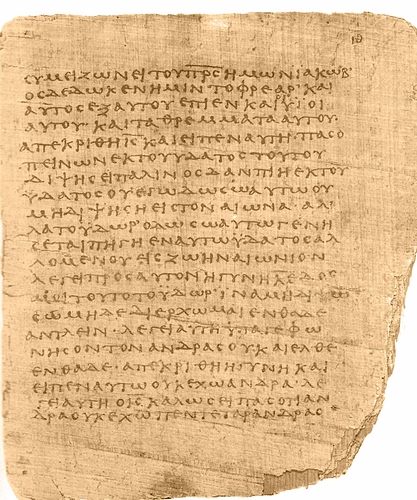 ΙΘ
ϹΥΜΕΙΖΩΝΕΙΤΟΥΠΡ̅Ϲ̅ΗΜΩΝΙΑΚΩΒ·
ΟϹΔΕΔΩΚΕΝΗΜΙΝΤΟΦΡΕΑΡ·ΚΑΙ
ΑΥΤΟϹΕΞΑΥΤΟΥΕΠΙΕΝΚΑΙΥΪΟΙ
ΑΥΤΟΥ·ΚΑΙΤΑΘΡΕΜΜΑΤΑΑΥΤΟΥ·
ΑΠΕΚΡΙΘΗΙ̅Ϲ̅ΚΑΙΕΙΠΕΝΑΥΤΗ·ΠΑϹΟ
ΠΕΙΝΩΝΕΚΤΟΥΥΔΑΤΟϹΤΟΥΤΟΥ
ΔΙΨΗϹΕΙΠΑΛΙΝΟϹΔΑΝΠΙΗΕΚΤΟΥ
ΫΔΑΤΟϹΟΥΕΓΩΔΩϹΩΑΥΤΩΟΥ
ΜΗΔΙΨΗϹΗΕΙϹΤΟΝΑΙΩΝΑ·ΑΛ
ΛΑΤΟΥΔΩΡ·ΟΔΩϹΩΑΥΤΩΓΕΝΗ
ϹΕΤΑΙΠΗΓΗΕΝΑΥΤΩΫΔΑΤΟϹΑΛ
ΛΟΜΕΝΟΥΕΙϹΖΩΗΝΑΙΩΝΙΟΝ
ΛΕΓΕΙΠΡΟϹΑΥΤΟΝΗΓΥΝΗΚΕΔΟϹ
ΜΟΙΤΟΥΤΟΤΟΫΔΩΡ·ΙΝΑΜΗΔΙΨΩ
ϹΩΜΗΔΕΔΙΕΡΧΩΜΑΙΕΝΘΑΔΕ
ΑΝΤΛΕΙΝ·ΛΕΓΕΙΑΥΤΗΥΠΑΓΕΦΩ
ΝΗϹΟΝΤΟΝΑΝΔΡΑϹΟΥ·ΚΑΙΕΛΘΕ
ΕΝΘΑΔΕ·ΑΠΕΚΡΙΘΗΗΓΥΝΗΚΑΙ
ΕΙΠΕΝΑΥΤΩΟΥΚΕΧΩΑΝΔΡΑ·ΛΕ
ΓΕΙΑΥΤΗΟΙ̅Ϲ̅·ΚΑΛΩϹΕΙΠΑϹΟΤΙΑΝ
ΔΡΑΟΥΚΕΧΩΠΕΝΤΕΓΑΡΑΝΔΡΑϹ